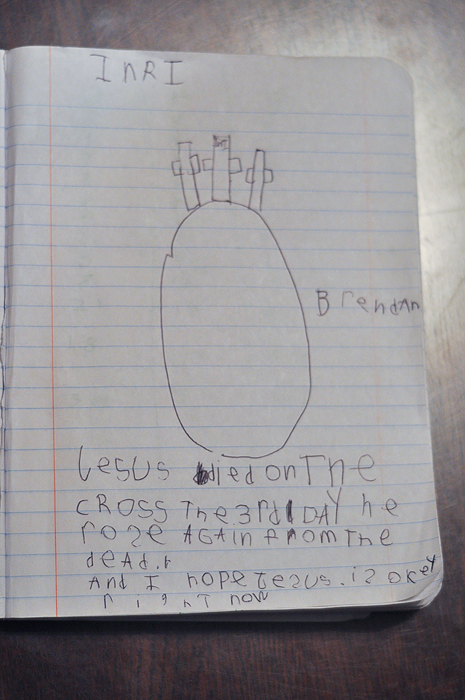 InRI
BrendAn
Jesus died on The
cRoss The 3rd DAY he
roze AGAin fRom The
deAd.
And I hope Jezus. iz okey
RighT now